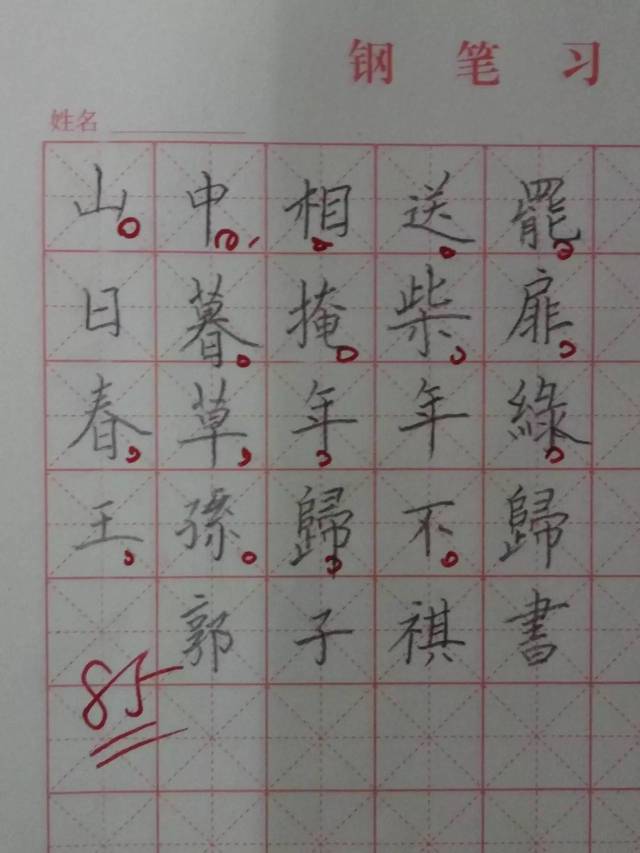 钢笔习
姓名
山中相送罷
日暮掩柴扉
春草年年綠
王孫歸不歸
郭子祺書
85